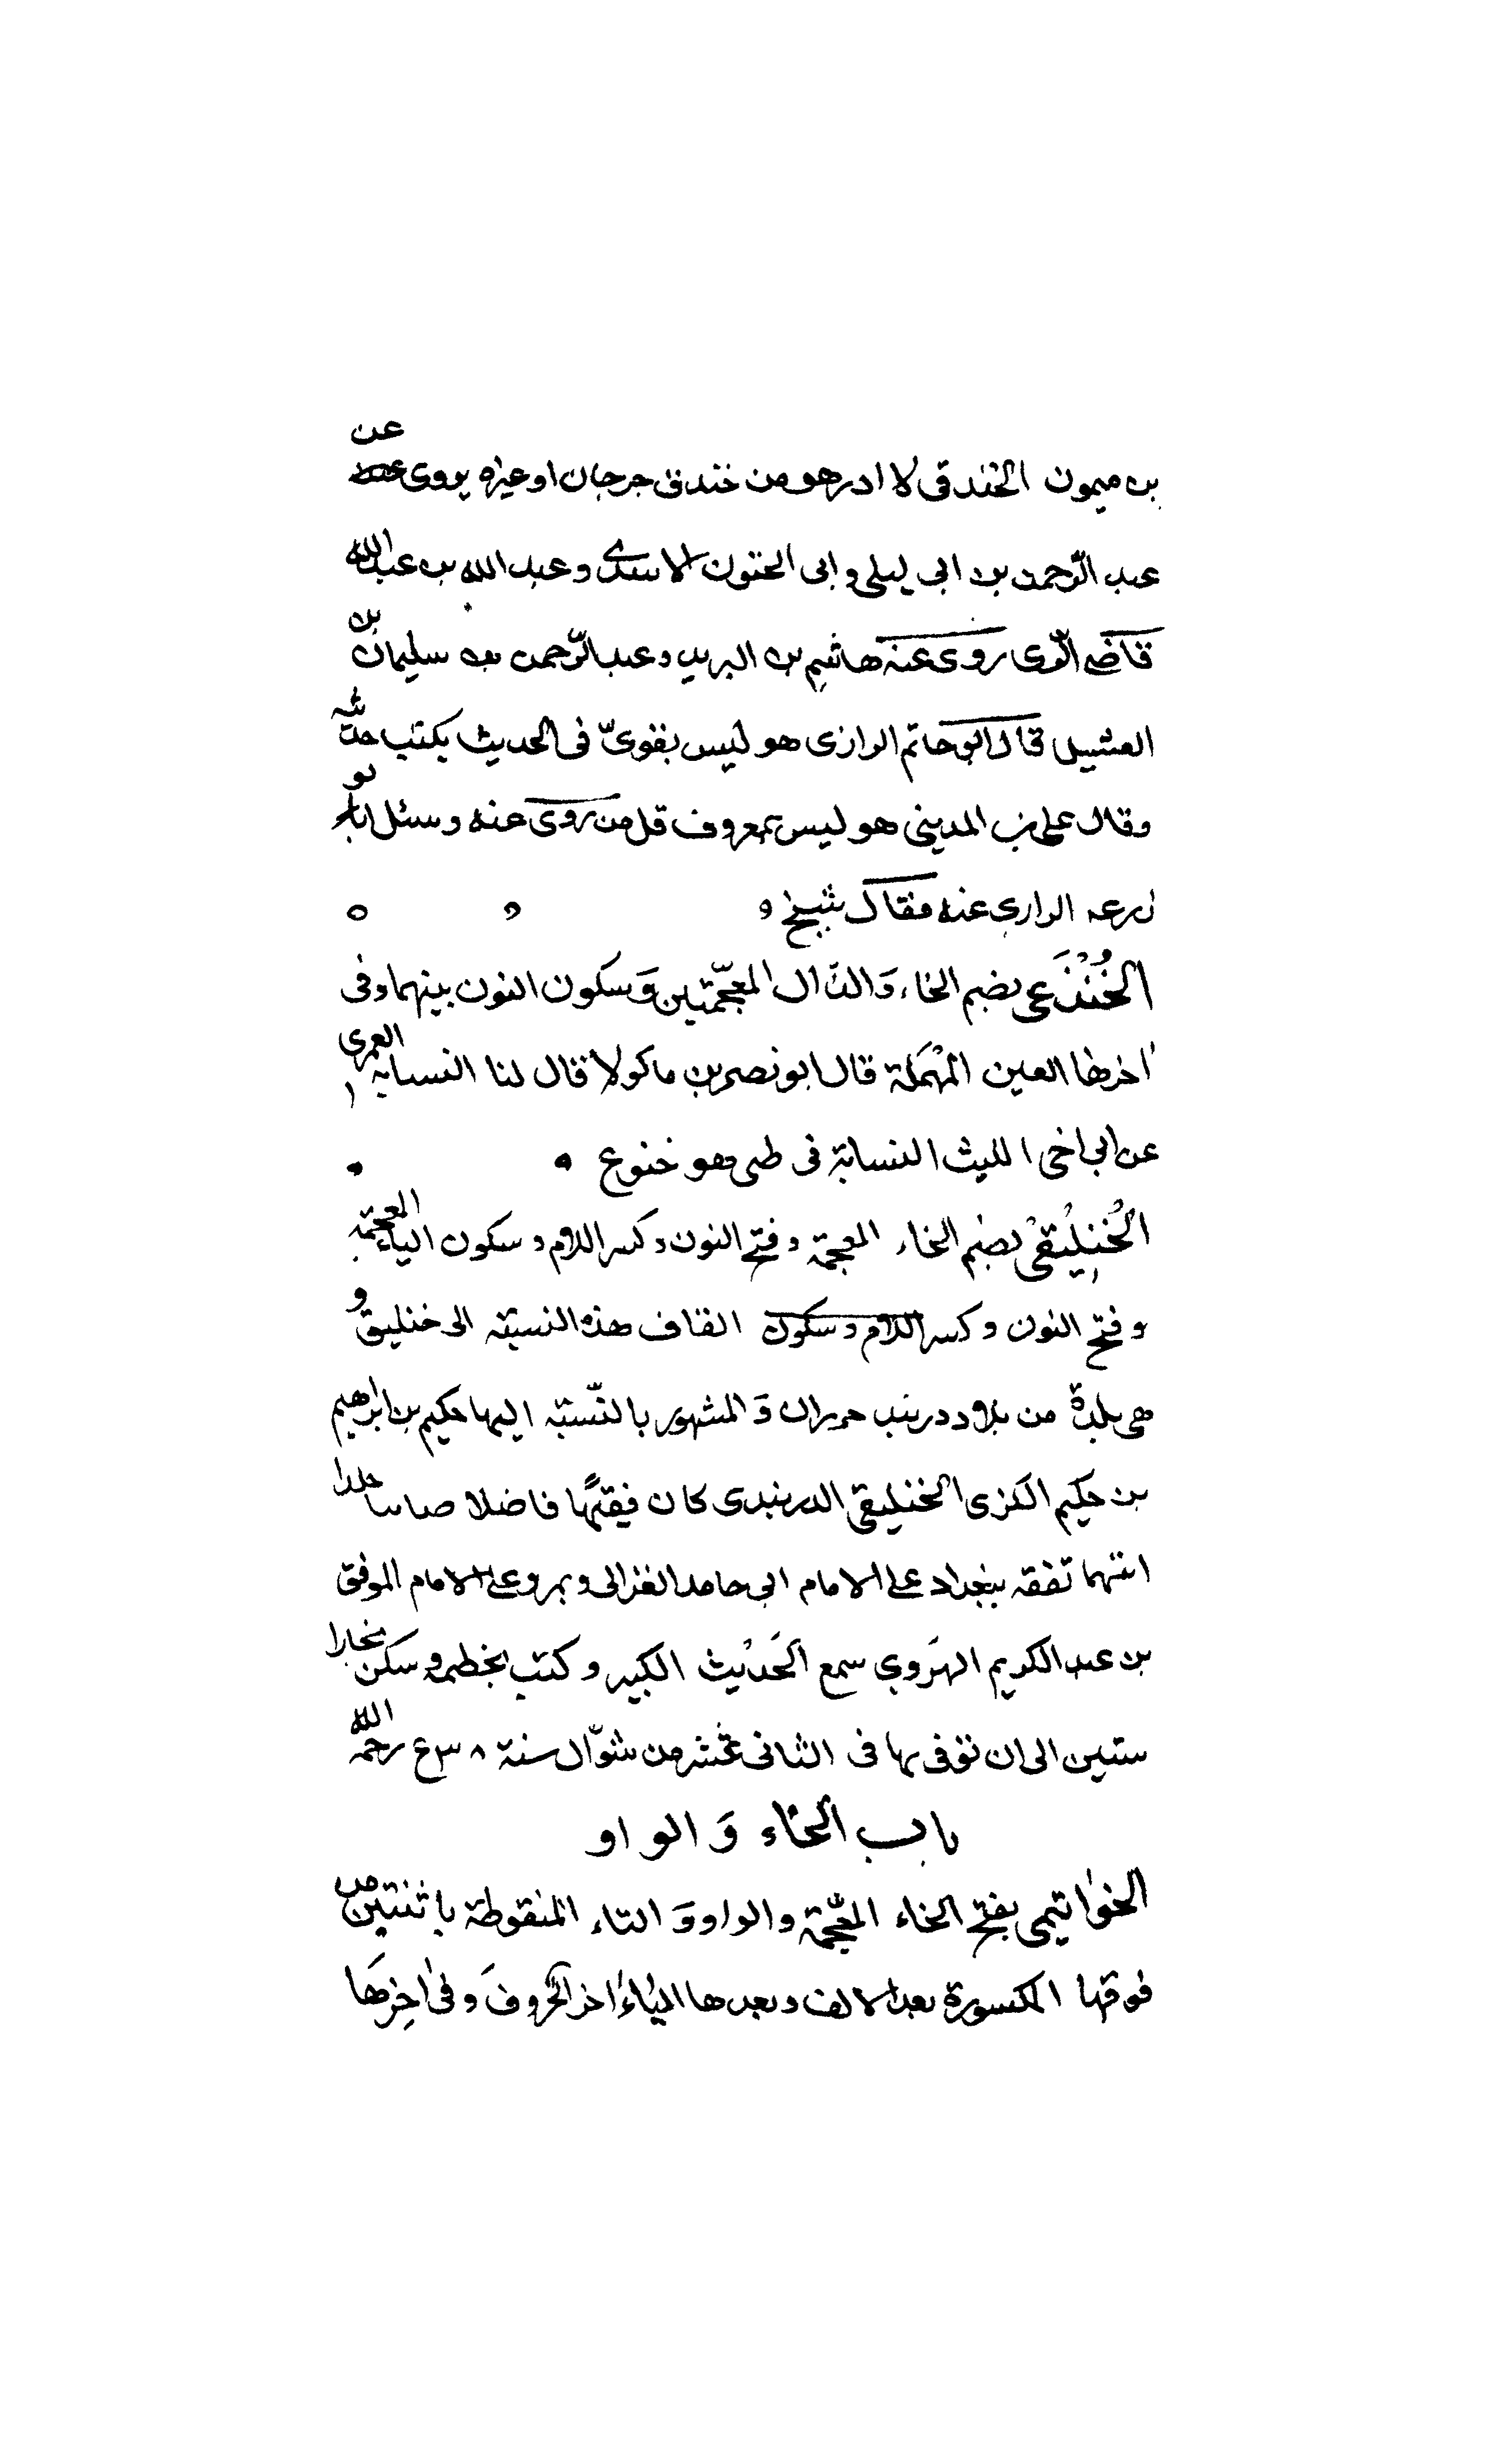 بن ميمون الخندقى لا ادر هو من خندق جرجان او غيره يروى عن
عبد الرّحمن بن ابى ليلى و ابى الحتون الاسدى و عبد الله بن عبد الله
قاضى الرّى روى عنه هاشم بن البريد و عبد الرّحمن بن سليمان بن
العشيل قال ابو حاتم الرازى هو ليس بقوىّ فى الحديث يكتب حديثه
وقال على بن المدينى هو ليس بمعروف قل من روى عنه وسئل ابو
زرعه الرازى عنه فقال شيخ ه
الخُنْذَعى بضم الخاء وَالذّال المعجّمتين وَسكون النون بينهما وفى
اخرها العين المْهَملة قال ابو نصر بن ماكولا قال لنا النسابه العمرى
عن ابى اخى الليث النسابة فى طى وهو خنوع
الخُنِليْقىْ بضم الخاء المعجمة و فتح النون و كسر اللام و سكون الياء المعجمة
و فتح النون و كسر اللام و سكون القاف هذه النسبة الى خنليق و
هى بلدة من بلاد دربند حرران وَ المشهور بالنّسبة اليها حكيم بن ابراهيم
بن حكيم الكزى الخنليقى الدربندى كان فيقهًا فاضلا
انتهما تفقه ببغداد على الامام ابى حامد الغزالى و بمرو على الامام الموفق
بن عبد الكريم الهَروى سمع الحَديْث الكبير و كتب بخطه و سكن بخارا
ستين الى ان توفى بها فى الثانى عْشر من شوّال سنة ٥٣٨ رحمه الله
باب الخاء وَ الواو
الخواتيمى بفتح الخاء المعجّمة والواو وَ التاء المنقوطة باثنتين من
فوقها المكسورة بعد الالف و بعدها الياء اخر الحروفَ و فى اخِرهَا